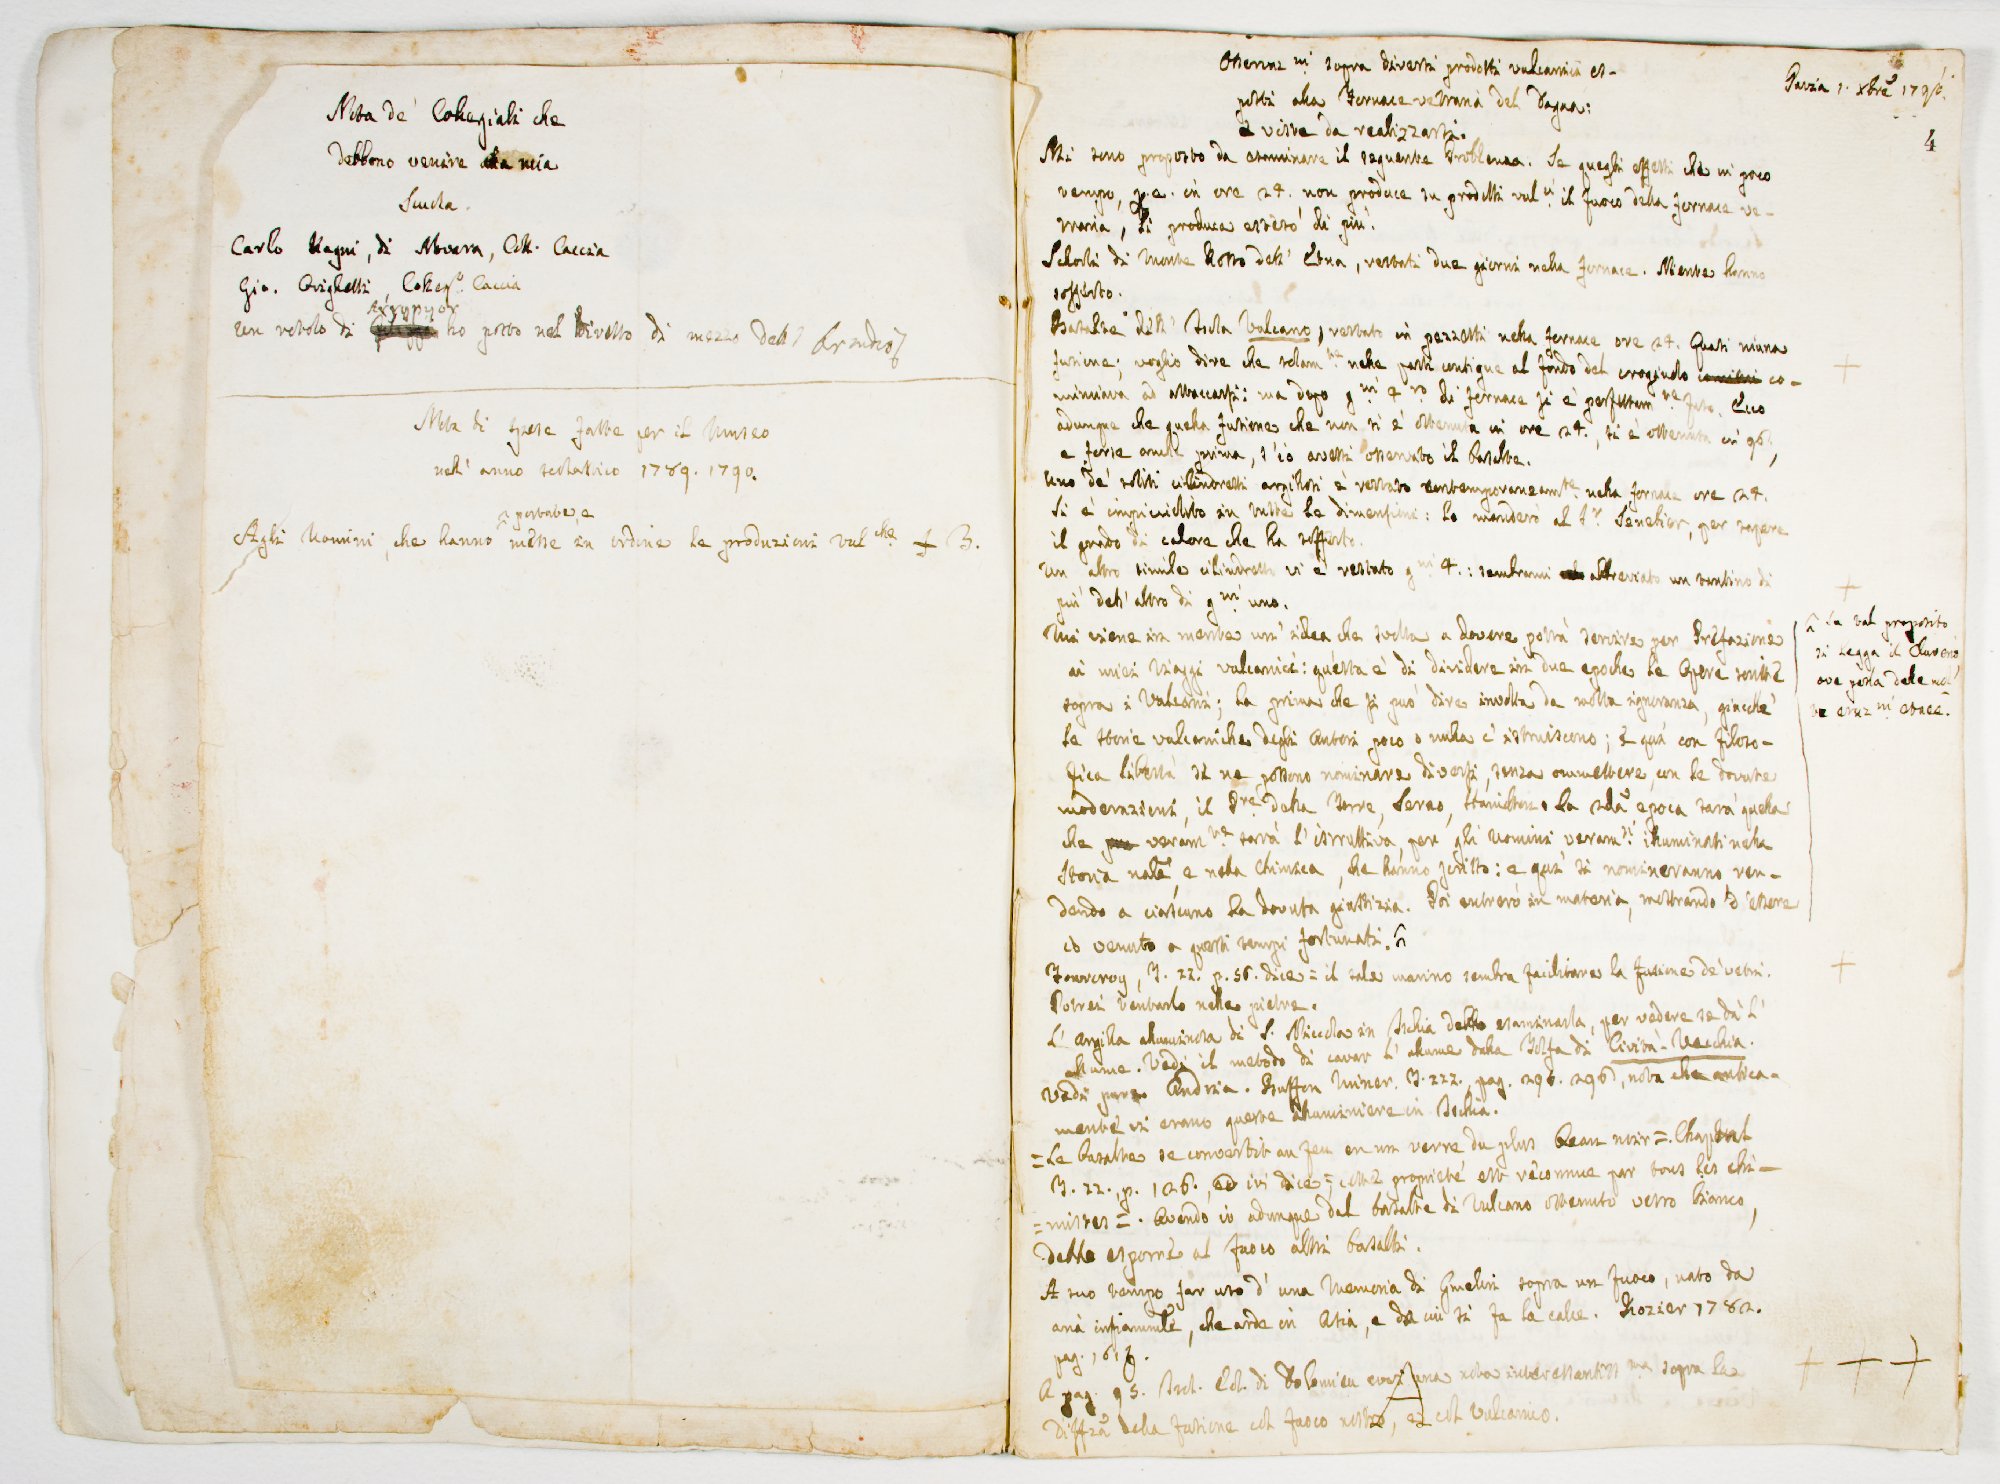 Nota de' Collegiali che
debbono venire alla mia
Scuola.
Carlo Magni, di Novara, Coll. Caccia
Gio. Brighetti, Colleg.o Caccia
un rotolo di ho posto nel tiretto di mezzo dell'
Nota di spese fatte per il Museo
nell' anno scolastico 1789. 1790.
portate, e
Agli Uomini, che hanno messe in ordine le produzioni vulche £ 3.
Pavia 1. Xbre 1790.
4
Osservaz.ni sopra diversi prodotti vulcanici es-
posti alla Fornace vetraria del
e viste da realizzarsi.
Mi sono proposto da esaminare il seguente Problema. Se quegli effetti che in poco
tempo, p.e. in ore 24. non produce su prodotti vul.ci il fuoco della fornace ve-
traria, li produca esteso di più.
Sclorli di Monte Rosso dell' Etna, restati due giorni nella fornace. Niente hanno
sofferto.
Basalte dell' Isola Vulcano, restato in pezzetti nella fornace ore 24. Quasi niuna
fusione; voglio dire che solam.te nelle parti contigue al fondo del crogiuolo co-
minciava ad attaccarsi: ma dopo g.ni 4 di fornace si è perfettam.te fuso. Ecco
adunque che quella fusione che non si è ottenuta in ore 24., si è ottenuta in 96,
e forse anche prima, s'io avessi osservato il basalte.
Uno de' soliti cilindretti argillosi è restato contemporaneam.te nella fornace ore 24.
Si è impicciolito in tutte le dimensioni: lo manderò al S.r Senebier, per sapere
il grado di calore che ha sofferto.
Un altro simile cilindretto vi è restato g.ni 4.: sembrami abbreviato un tantino di
più dell' altro di g.ni uno.
Mi viene in mente un' idea che svolta a dovere potrà servire per Prefazione
ai miei Viaggi vulcanici: questa è di dividere in due epoche le Opere scritte
sopra i Vulcani; la prima che si può dire involta da molta ignoranza, giacchè
le storie vulcaniche degli Autori poco o nulla c'istruiscono; e quì con filoso-
fica libertà si ne possono nominare diversi, senza ommettere, con le dovute
moderazioni, il P.re della Torre, Serao, Hamilton. La 2da epoca sarà quella
che veram.te sarà l'istruttiva, per gli Uomini veram.ti illuminati nella
Storia nat.le e nella Chimica, che hanno scritto: e quì si nomineranno ren-
dendo a ciascuno la dovuta giustizia. Poi entrerò in materia, mostrando d'essere
io venuto a questi tempi fortunati.
a tal proposito
si legga il
ove parla delle mol-
te eruz.ni etnee.
Fourcroy, T. 22. p. 56. dice = il sale marino sembra facilitare la fusione de' vetri.
Potrei tentarlo nelle pietre.
L' argilla alluminosa di S. Niccola in Ischia debbo esaminarla, per vedere se dà l'
allume. Vedi il metodo di cavar l' allume dalla Tolfa di Civita-Vecchia.
Vedi pure Andria. Buffon Miner. T. 222. pag. 296. 296, nota che antica-
mente vi erano queste alluminiere in Ischia.
= Le basalte se convertit au feu en un verre du plus beau noir =. Chaptal
T. 22., p. 126., ed ivi dice = cette proprieté est reconnue par tous les chi-
= mistes =. Avendo io adunque dal basalte di Vulcano ottenuto vetro bianco,
debbo esporre al fuoco altri basalti.
A suo tempo far uso d' una Memoria di Gmelin sopra un fuoco, nato da
aria infiammab.le, che arde in Asia, e da cui si fa la calce. Rozier 1782.
pag. 161.
A pag. 95. Isol. Eol. di Dolomieu evvi una nota interessantiss.ma sopra la
Diffza della fusione col fuoco nostro, e col vulcanico.